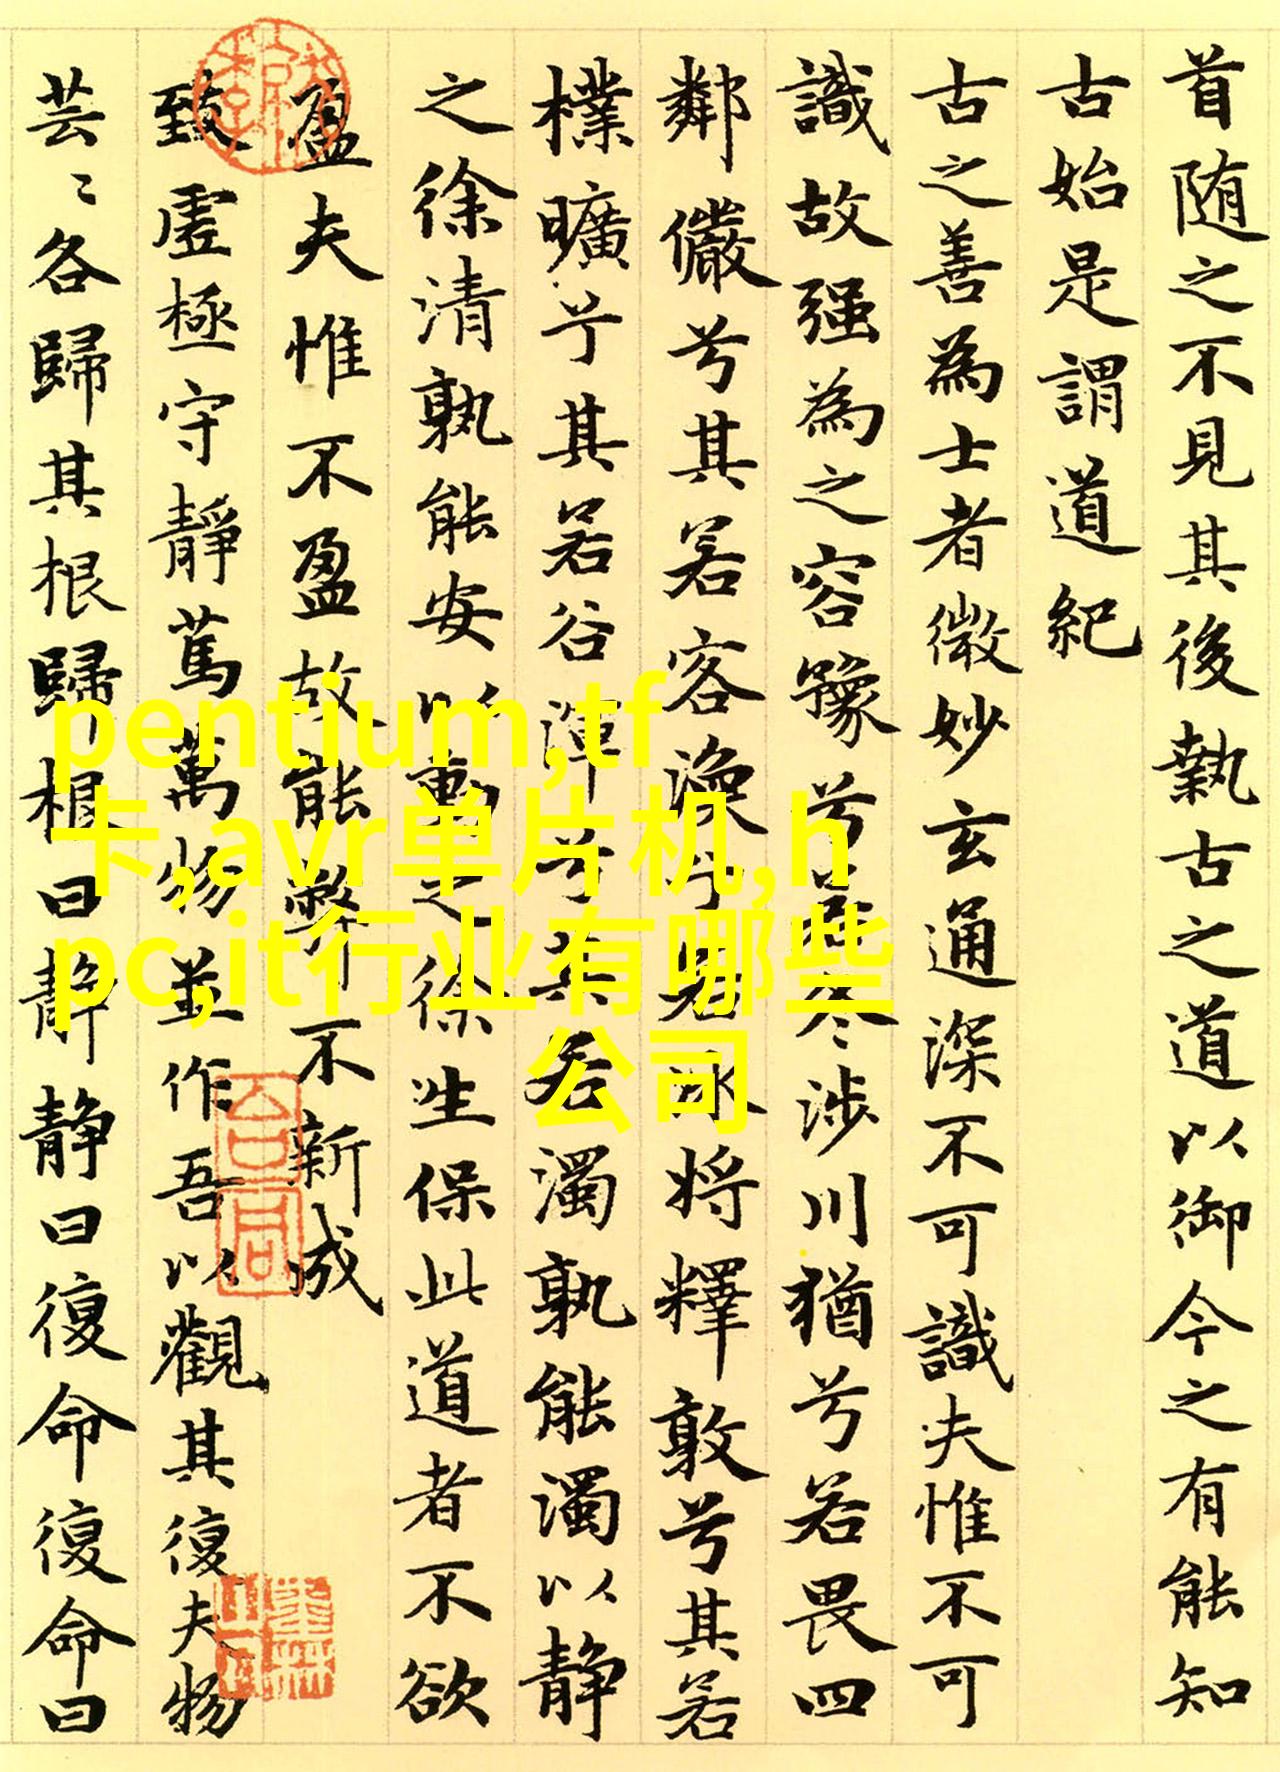 首随之不見其後執古之道以御今之有能知
古始是謂道紀
古之善為士者微妙玄通深不可識夫惟不可
識故强為之容豫兮若冬涉川猶兮若畏四
鄰儼兮其若客渙兮若冰將釋敦兮其若
樸曠兮其若谷渾兮其若濁孰能濁以静
之徐清孰能安以動之徐生保此道者不欲
盈夫惟不盈故能弊不新成
致虛極守靜篤萬物並作吾以觀其復夫物
芸〻各歸其根歸根曰静静曰復命復命曰
pentium,tf
卡,avr单片机,h
pc,it行业有哪些
公司